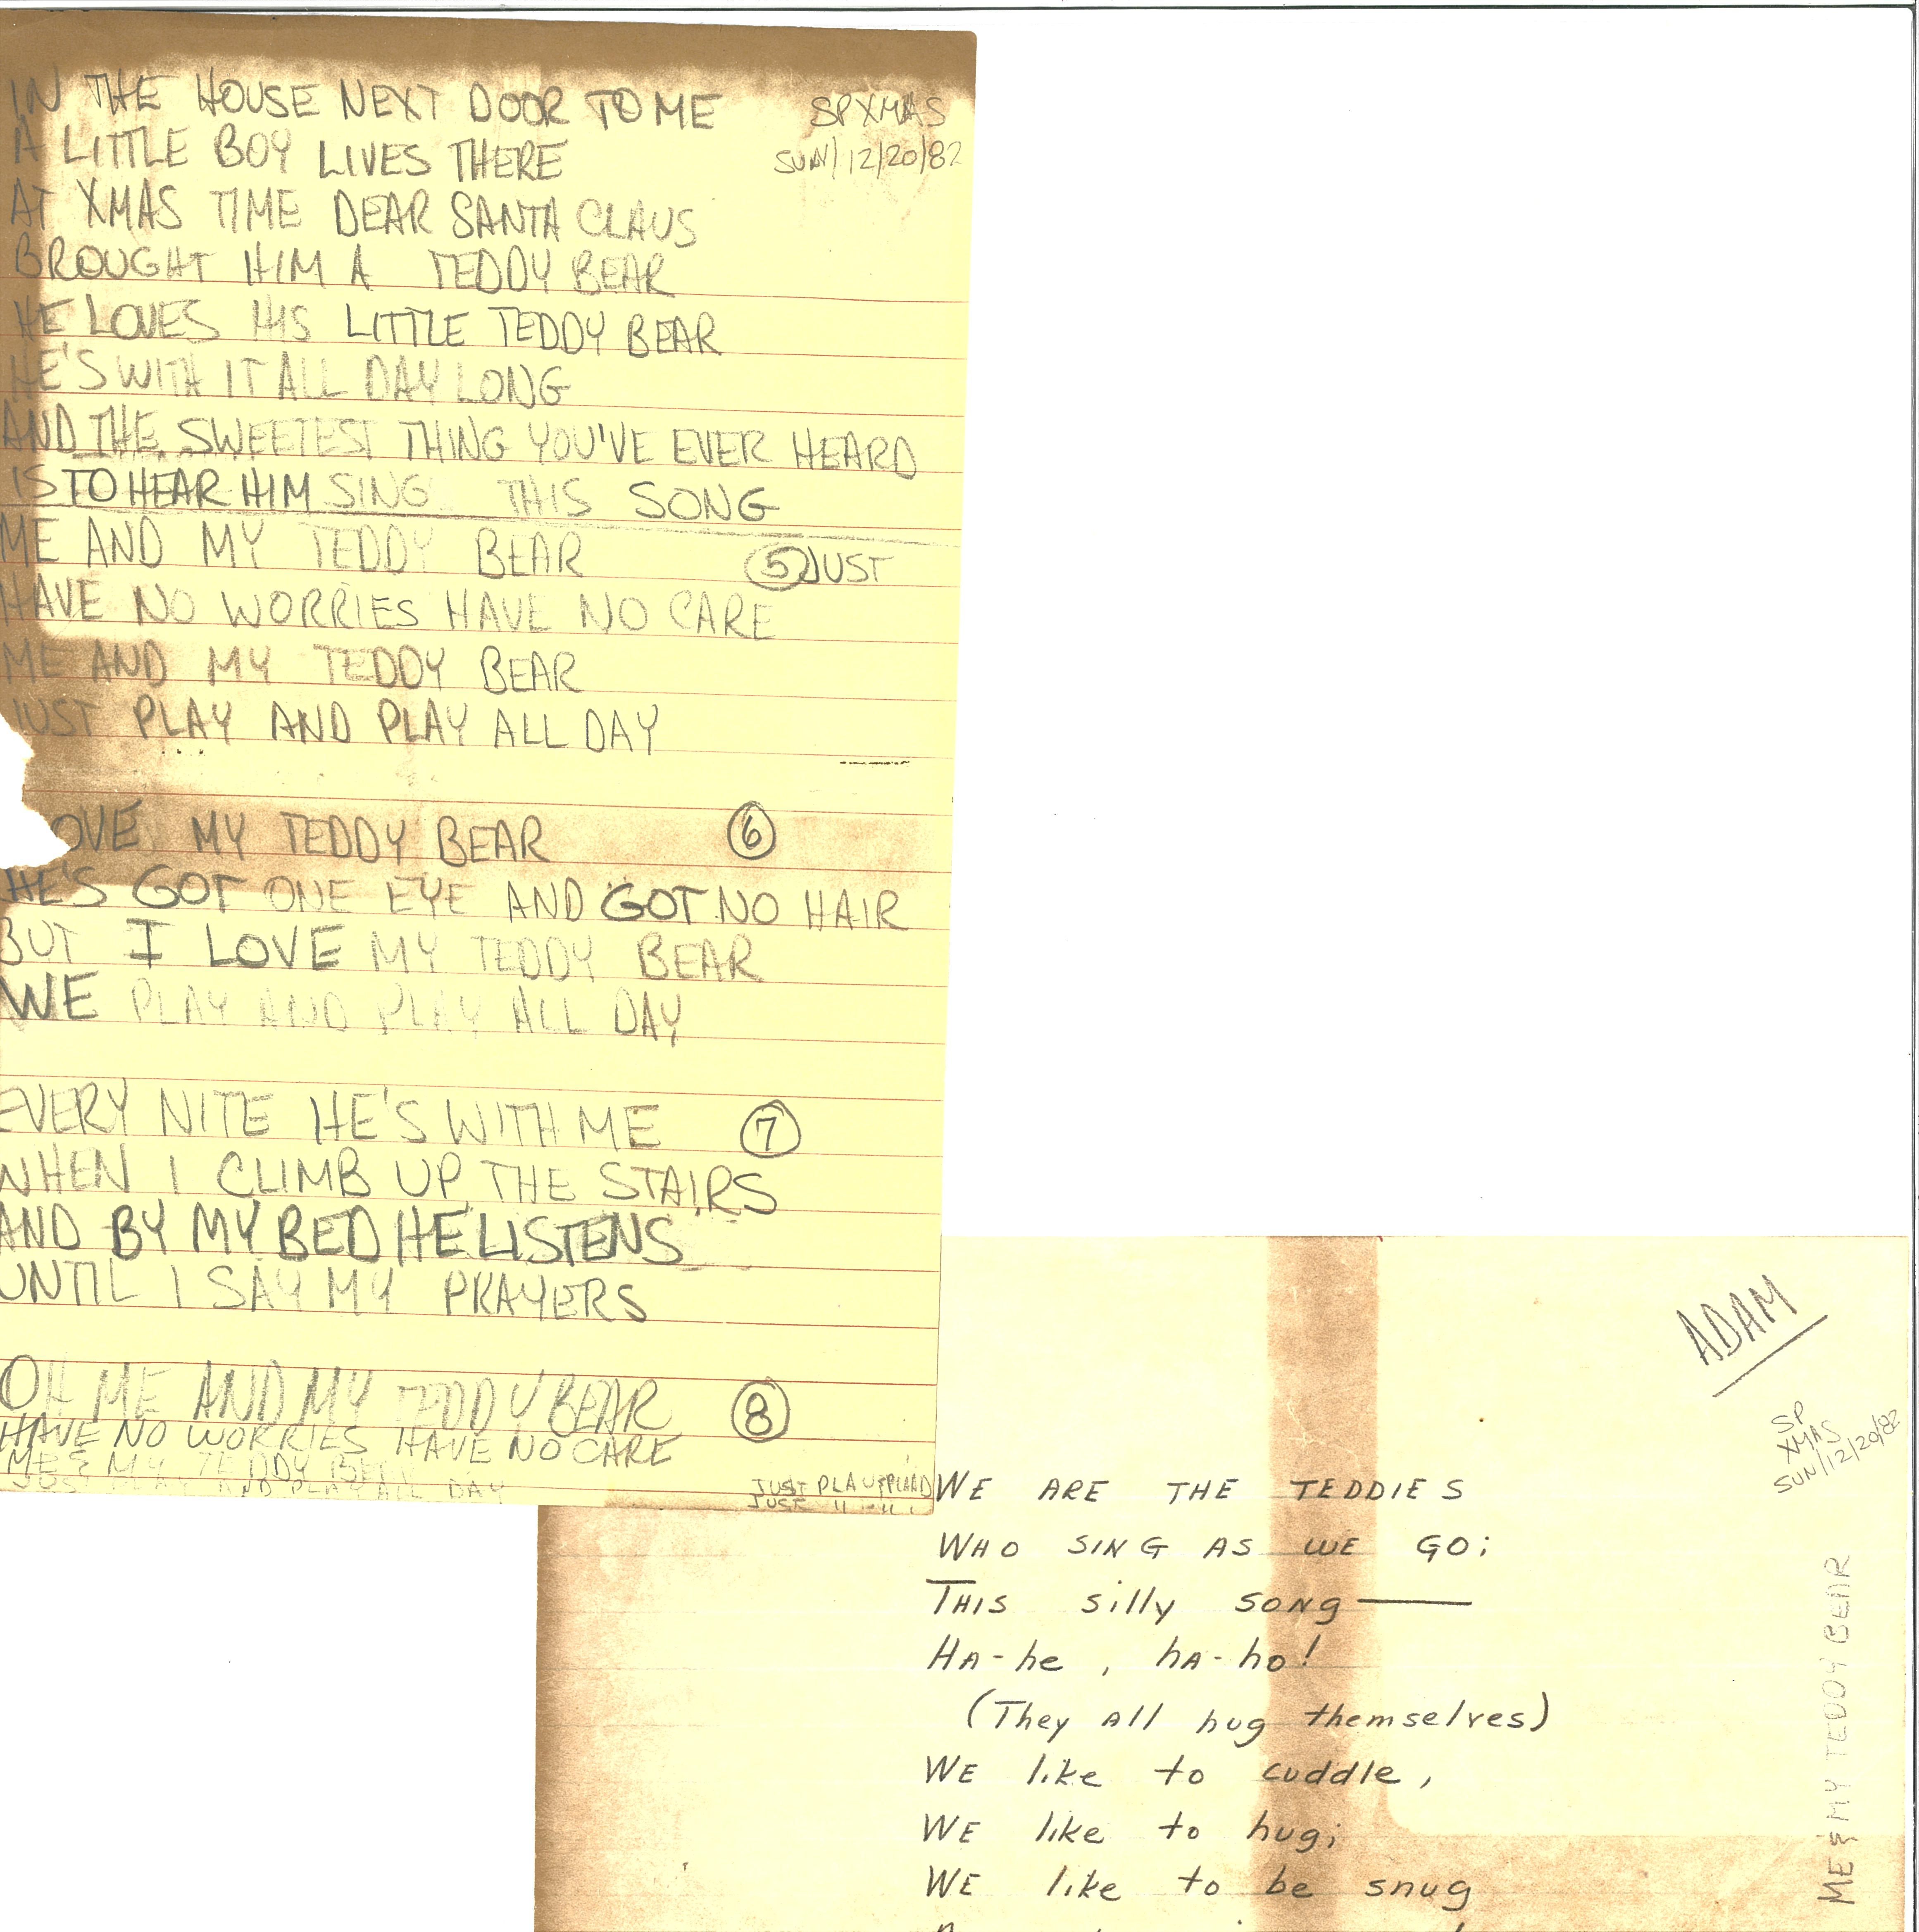 IN THE HOUSE NEXT DOOR TO ME
SP XMAS
A LITTLE BOY LIVES THERE
SUN/12/20/82
AT XMAS TIME DEAR SANTA CLAUS
BROUGHT HIM A TEDDY BEAR
HE LOVES HIS LITTLE TEDDY BEAR
HE'S WITH IT ALL DAY LONG
AND THE SWEETEST THING YOU'VE EVER HEARD
IS TO HEAR HIM SING THIS SONG
ME AND MY TEDDY BEAR
5 JUST
HAVE NO WORRIES HAVE NO CARE
ME AND MY TEDDY BEAR
JUST PLAY AND PLAY ALL DAY
OVE MY TEDDY BEAR
6
HE'S GOT ONE EYE AND GOT NO HAIR
BUT I LOVE MY TEDDY BEAR
WE PLAY AND PLAY ALL DAY
EVERY NITE HE'S WITH ME
7
WHEN I CLIMB UP THE STAIRS
AND BY MY BED HE LISTENS
UNTIL I SAY MY PRAYERS
OH ME AND MY TEDDY BEAR
8
HAVE NO WORRIES HAVE NO CARE
ME & MY TEDDY BEAR
JUST PLAY AND PLAY ALL DAY
JUST PLAY
JUST " "
ADAM
SP
XMAS
SUN/12/20/82
WE ARE THE TEDDIES
WHO SING AS WE GO;
THIS silly SONG —
HA-he, hA-ho!
(They All hug themselves)
WE like to cuddle,
WE like to hug;
WE like to be snug
ME & MY TEDDY BEAR